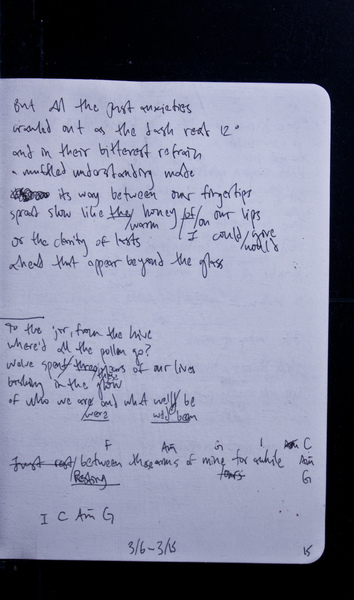 But All the past anxieties
crawled out as the dash read 12°
and in their bitterest refrain
a muffled understanding made
its way between our fingertips
spread slow like they honey of/on our lips
warm I could give
or the clarity of lasts would
ahead that appear beyond the glass
To the jar, from the hive
where'd all the pollen go?
we've spent three years of our lives
basking in the glow
of who we are and what we'll be
were we'd been
F Am C
Just rest/between those arms of mine for awhile Am
Resting yours G
I C Am G
3/6-3/15
15